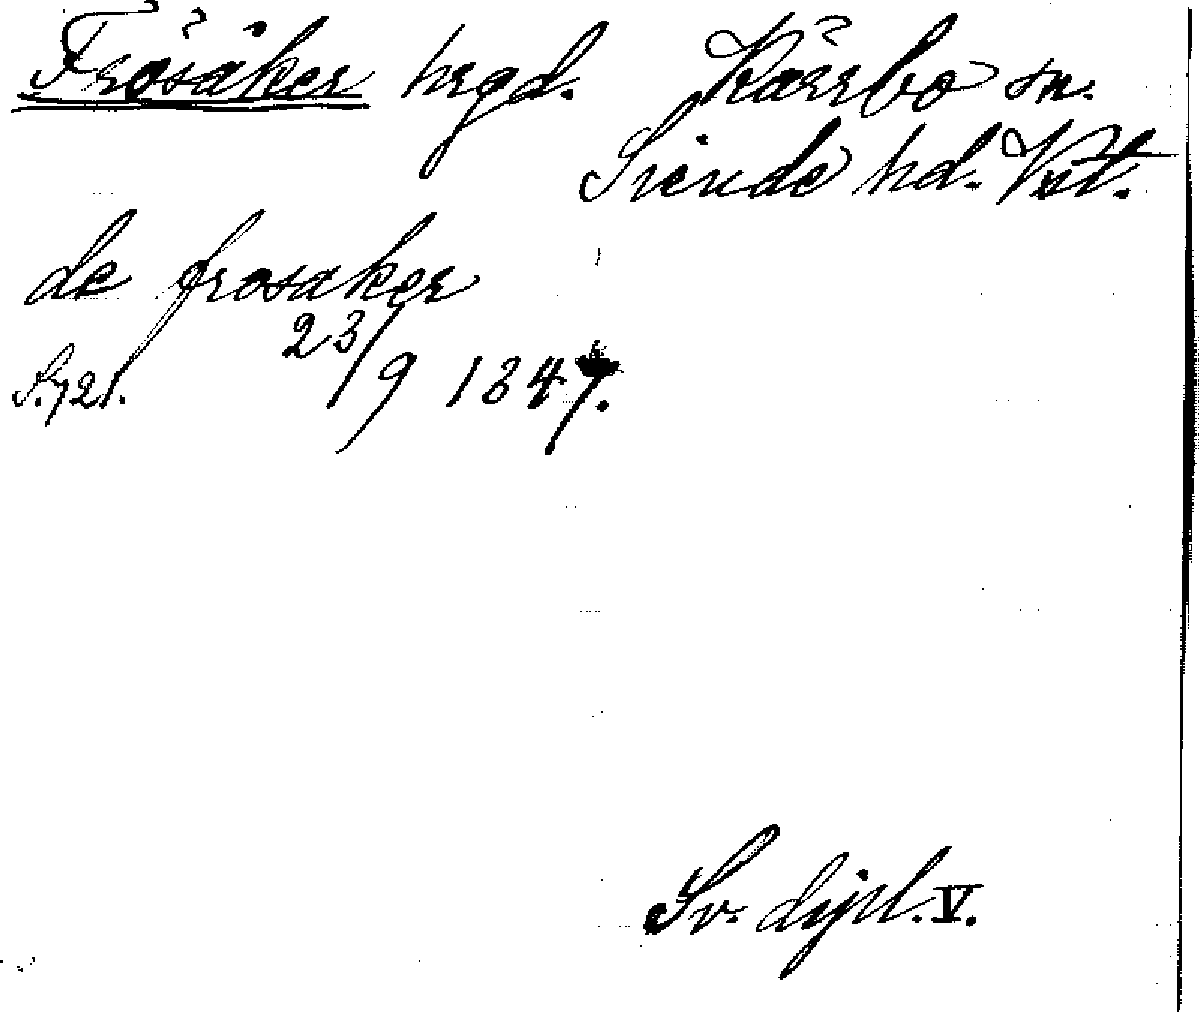 Frösåker hrgd. Kärrbo sn.
Siende hd. Vstl.
de frosaker
23/9 1347.
S. 721.
Sv. dipl. V.